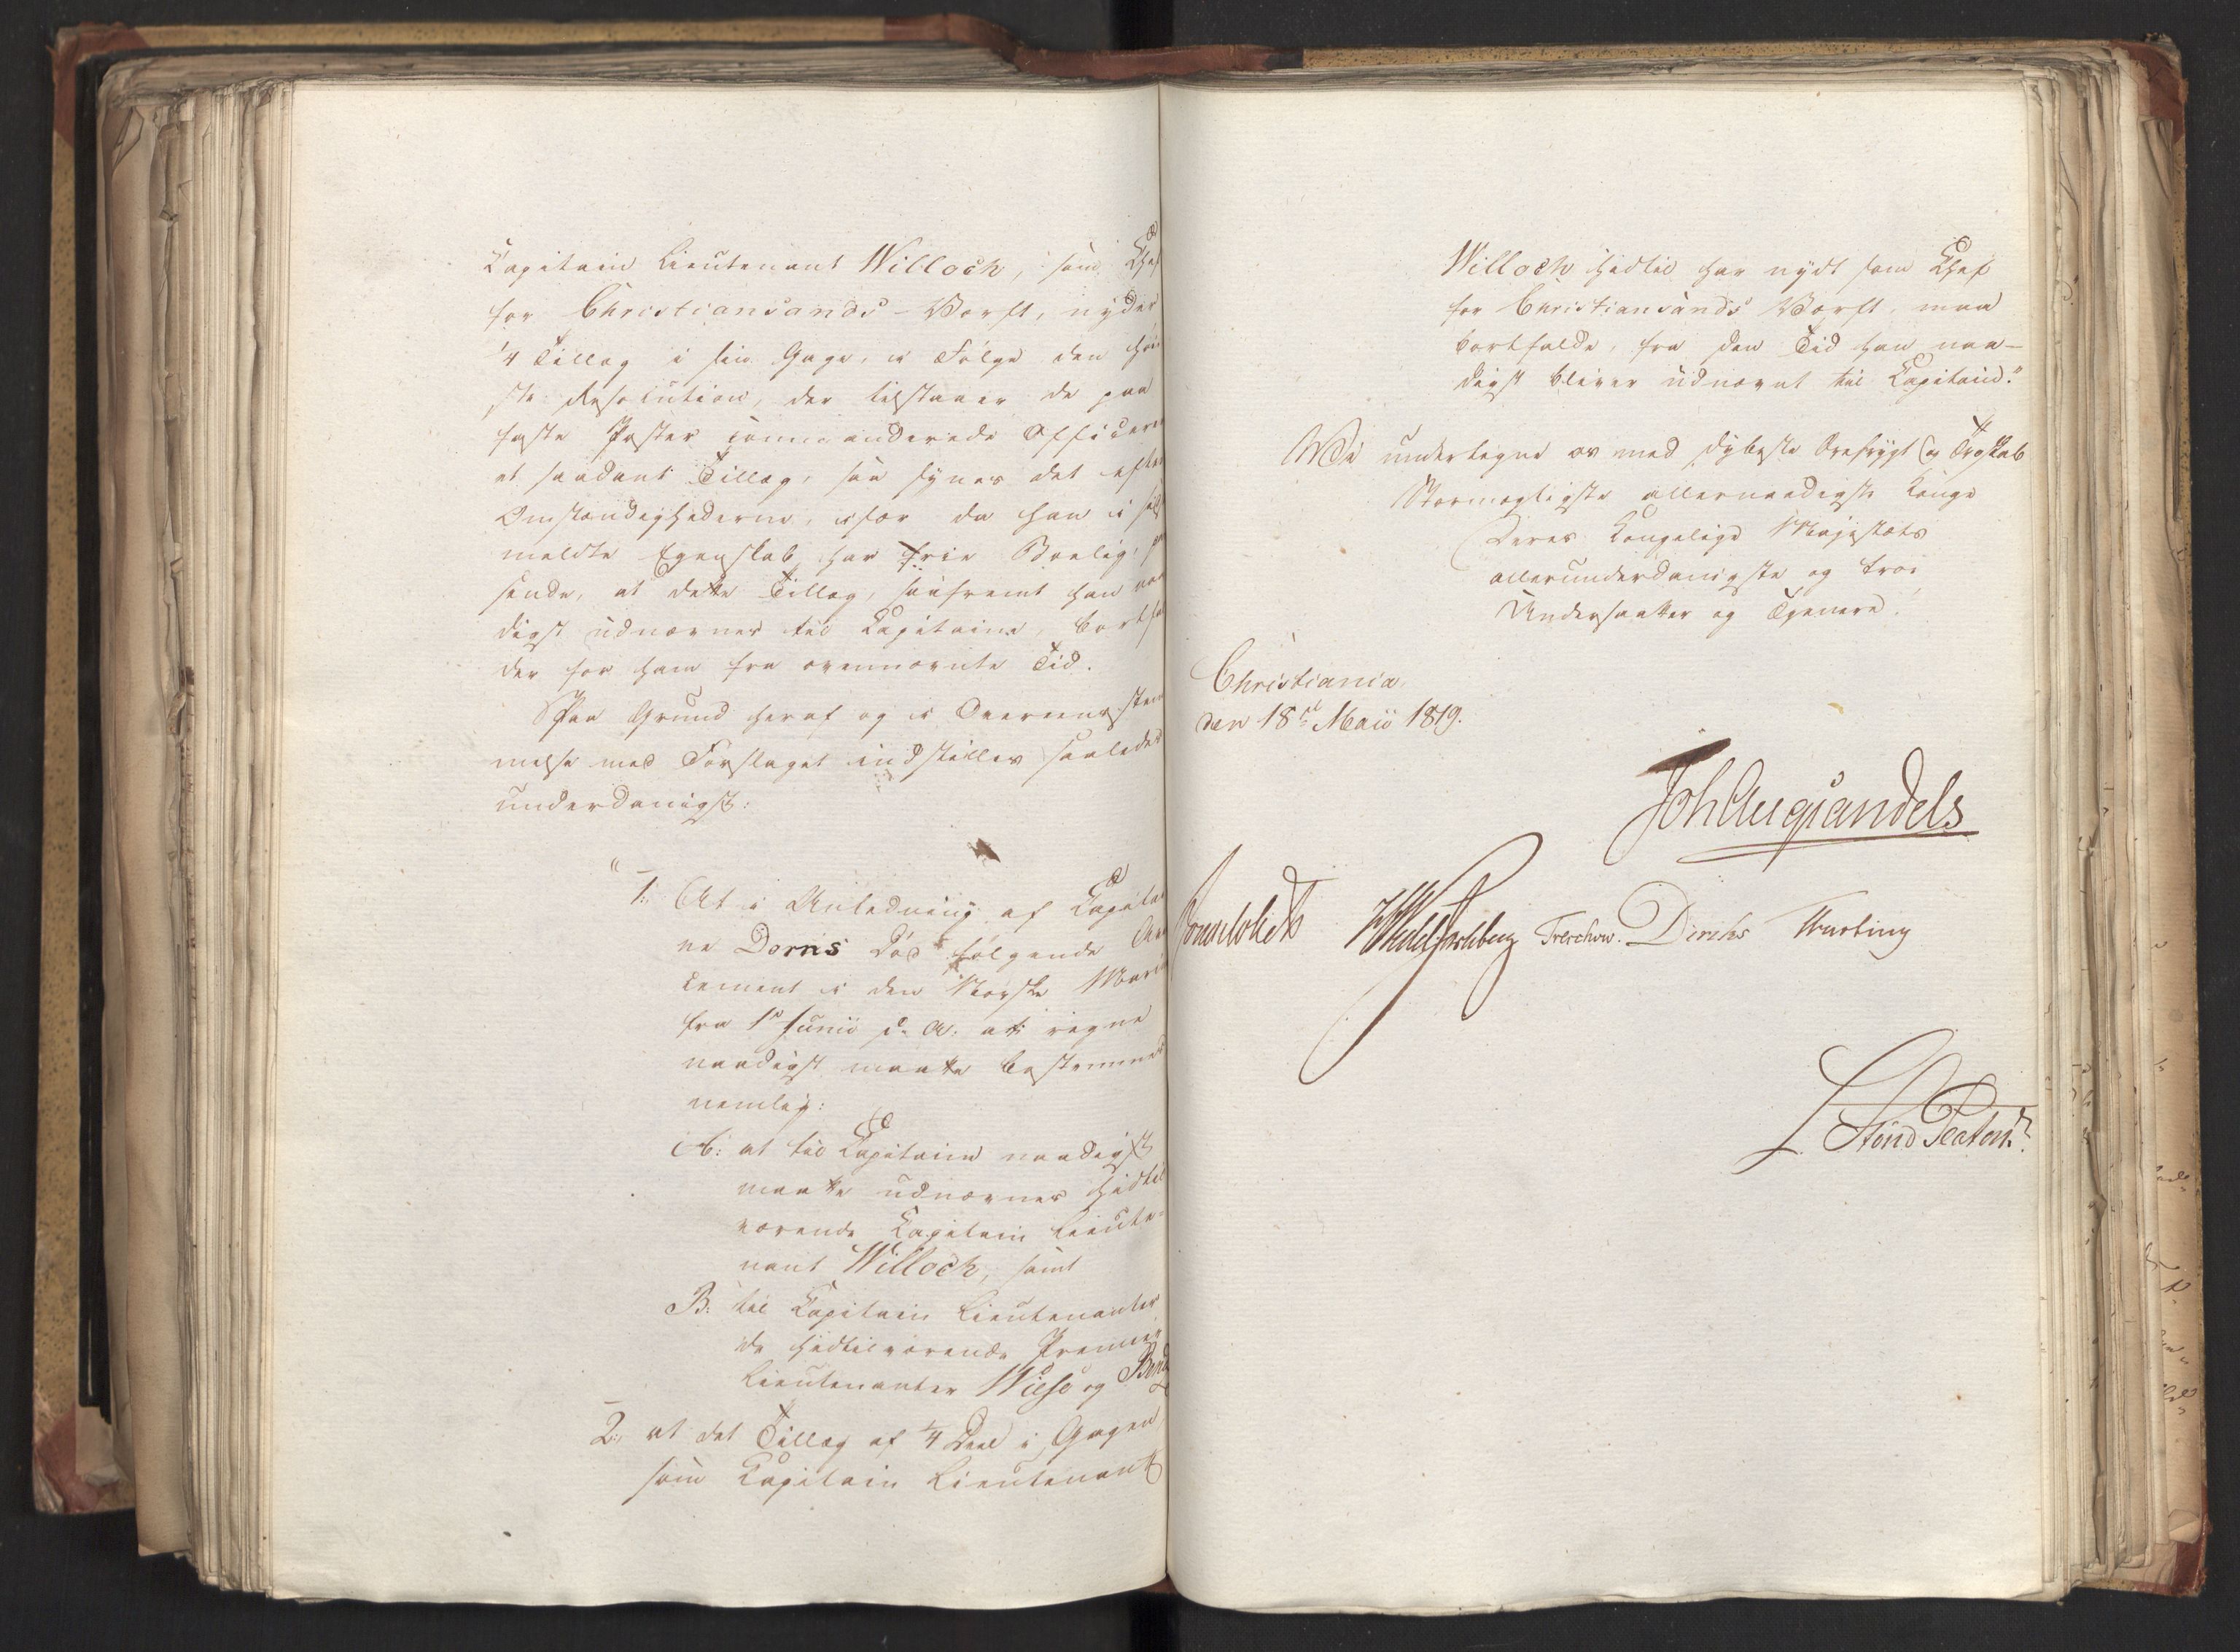 Capitain Lieutenant Willoch, som Chef
for Christiansands-Værft, nyder
1/4 Tillæg i sin Gage, i Følge den høi
ste Resolution, der tilstaaer de paa
faste Poster commanderede Officerer
et saadant Tillæg, saa synes det efter
Omstændighederne, især da han i
meldte Egenskab har frie Boelig,
sende, at dette Tillæg, saafremt han naa
digst udnævnes til Capitaine, bortfal
der for ham fra ovennævnte Tid.
Paa Grund heraf og i Overeensstem
melse med Forslaget indstilles saaledes
underdanigst:
"1., At i Anledning af Capitai
ne Dorns Død følgende Avan
cement i den Norske Marine
fra 1ste Junii d. A. at regne
naadigst maatte bestemmes
nemlig:
A: at til Capitaine naadigst
maatte udnævnes hidtil
værende Capitain Lieute-
nant Willoch, samt
B: til Capitain Lieutenanter
de hidtilværende Premier
Lieutenanter Wiese og
2., at det Tillæg af 1/4 Deel i Gagen,
som Capitain Lieutenant
Willoch hidtil har nydt som Chef
for Christiansands Værft, maa
bortfalde, fra den Tid han naa-
digst bliver udnævnt til Capitaine."
Vi undertegne os med dybeste Ærefrygt og Troskab
Stormægtigste allernaadigste Konge
Deres Kongelige Majestæts
allerunderdanigste og troe
Undersaatter og Tjenere.
Christiania
den 18de Maii 1819.
Joh Aug Sandels
Sommerhielm
HWedel Jarlsberg Treschow. Diriks Fasting